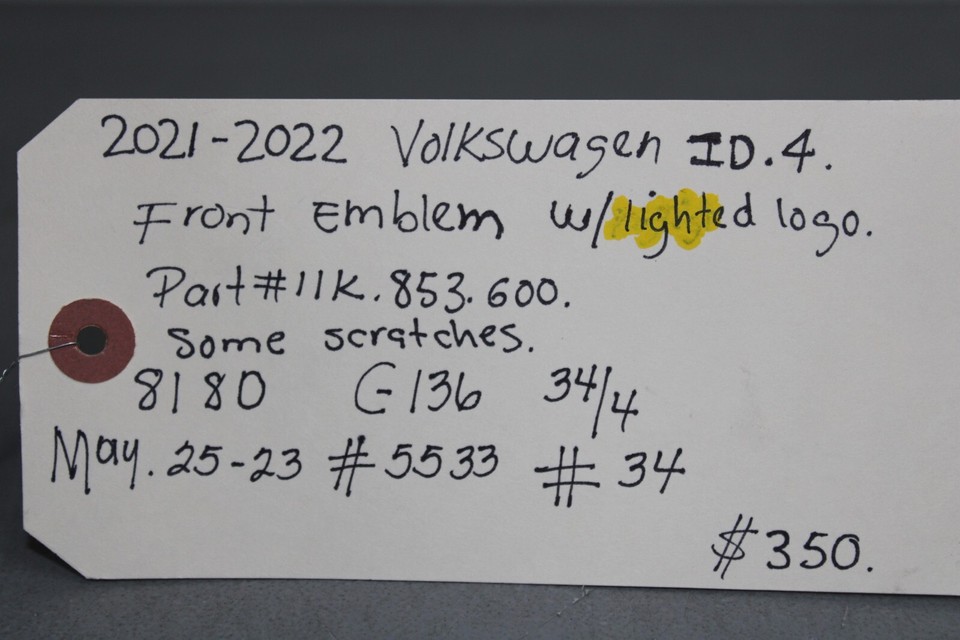 2021-2022 Volkswagen ID.4.
Front Emblem w/lighted logo.
Part#11K.853.600.
Some scratches.
8180 G-136 34/4
May. 25-23 #5533 #34
$350.